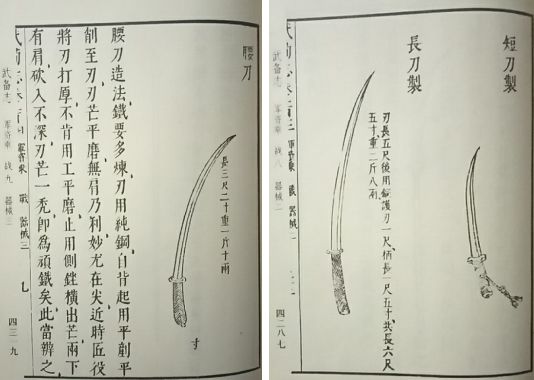 腰刀
長三尺二寸重一斤十兩
寸
腰刀造法鐵要多煉刃用純鋼自背起用平剷平
削至刃刃芒平磨無肩乃利妙尤在尖近時匠役
將刃打厚不肯用工平磨止用側銼橫出芒兩下
有肩砍入不深刃芒一禿即為頑鐵矣此當辨之
武备志 军资乘 战九 器械三
四三一九
短刀製
長刀製
刃長五尺後用銅護刃一尺柄長一尺五寸共長六尺
五寸重二斤八兩
武备志 军资乘 战八 器械二
四二八七